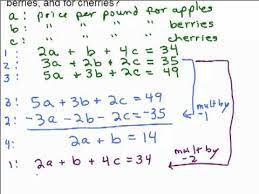 berries, and for cherries?
a: price per pound for apples
b: " " " berries
c: " " " cherries
1: 2a + b + 4c = 34
2: 3a + 2b + 2c = 35
3: 5a + 3b + 2c = 49
3: 5a + 3b + 2c = 49
2: -3a - 2b - 2c = -35 mult by -1
4: 2a + b = 14
1: 2a + b + 4c = 34 mult by -2